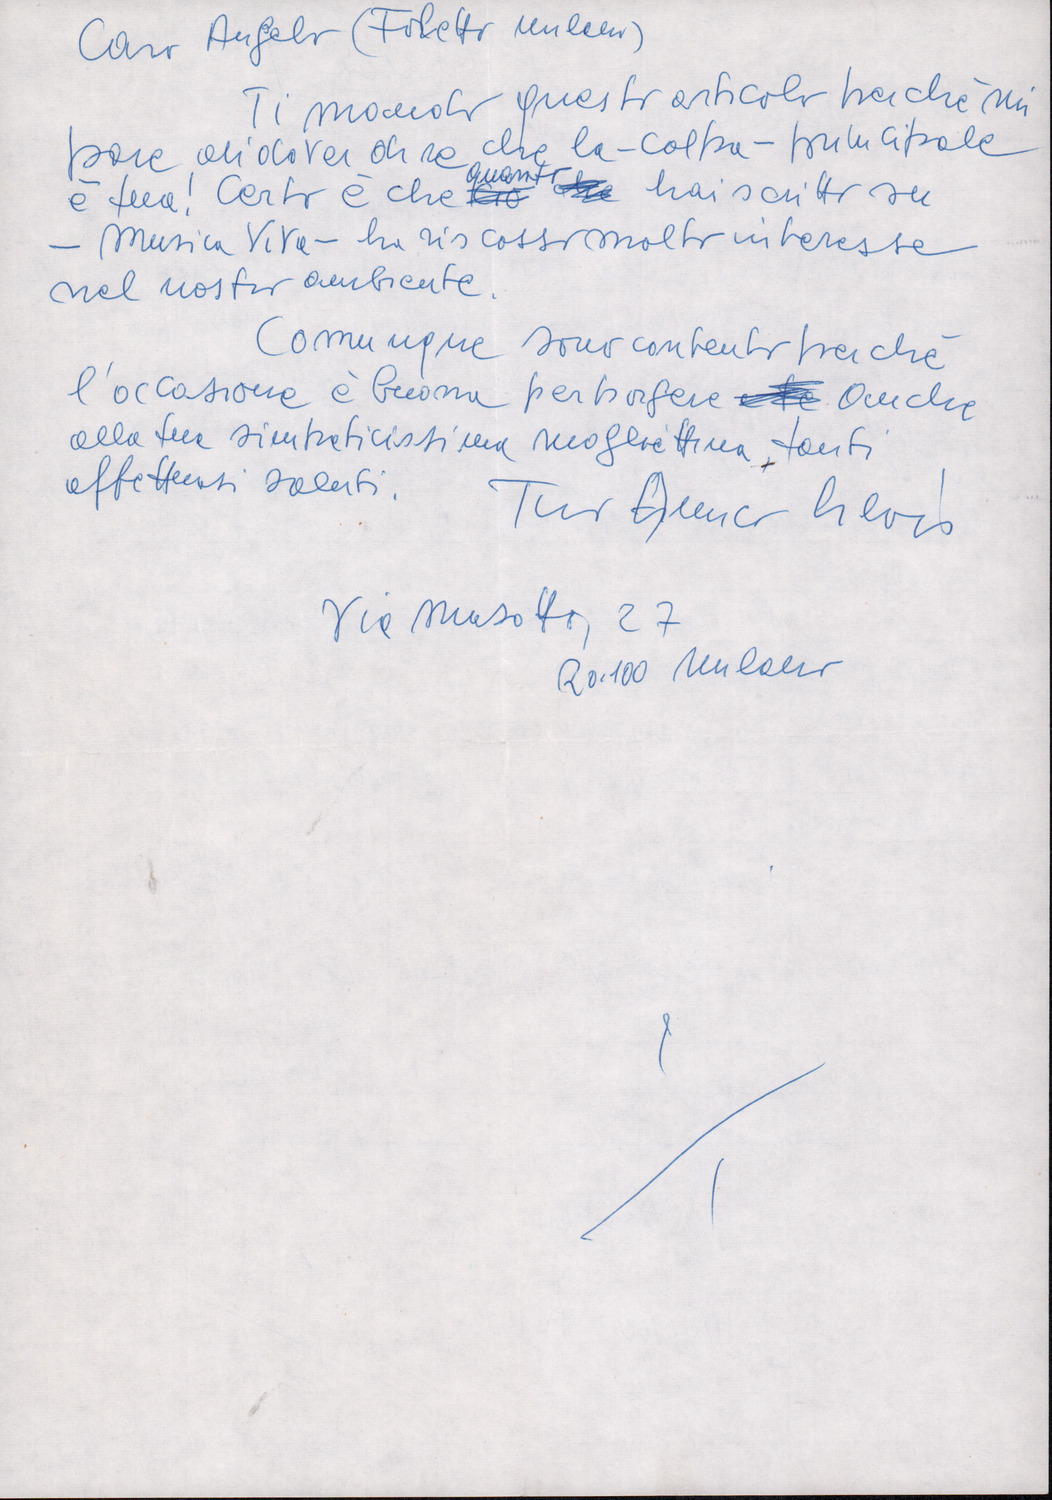 Caro Angelo (Foletto Milano)
Ti mando questo articolo perchè mi
pare di dover dire che la - colpa - principale
è tua! Certo è che quanto hai scritto su
- Musica Viva - ha riscosso molto interesse
nel nostro ambiente.
Comunque sono contento perchè
l'occasione è buona per porgere anche
alla tua simpaticissima mogliettina, tanti
affettuosi saluti.
Tuo
Via Masotto, 27
20.100 Milano